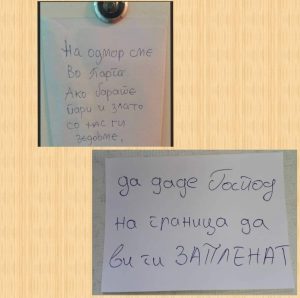 На одмор сме
во Парга.
Ако барате
пари и злато
со нас ги
зедовме.
да даде Господ
на граница да
ви ги ЗАПЛЕНАТ